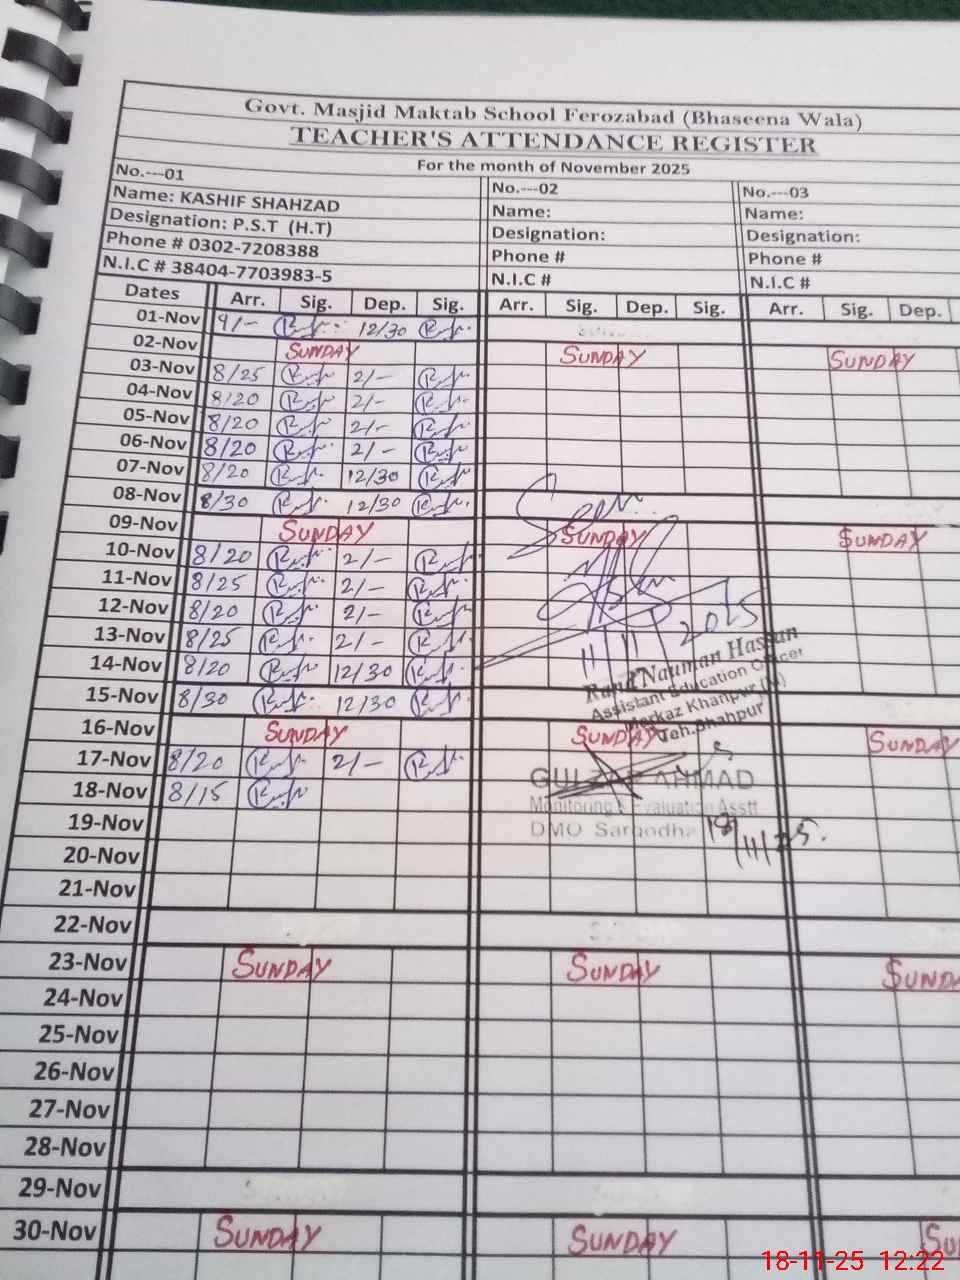 Govt. Masjid Maktab School Ferozabad (Bhaseena Wala)
TEACHER'S ATTENDANCE REGISTER
For the month of November 2025
No.---01 No.---02 No.---03
Name: KASHIF SHAHZAD Name: Name:
Designation: P.S.T (H.T) Designation: Designation:
Phone # 0302-7208388 Phone # Phone #
N.I.C # 38404-7703983-5 N.I.C # N.I.C #
Dates Arr. Sig. Dep. Sig. Arr. Sig. Dep. Sig. Arr. Sig. Dep.
01-Nov 9/- 12/30
02-Nov SUNDAY SUNDAY SUNDAY
03-Nov 8/25 2/-
04-Nov 8/20 2/-
05-Nov 8/20 2/-
06-Nov 8/20 2/-
07-Nov 8/20 12/30
08-Nov 8/30 12/30
Seen
09-Nov SUNDAY SUNDAY SUNDAY
10-Nov 8/20 2/-
11-Nov 8/25 2/-
12-Nov 8/20 2/-
13-Nov 8/25 2/-
11/11/2025
14-Nov 8/20 12/30
Rana Nauman Hassan
Assistant Education Officer
15-Nov 8/30 12/30
Markaz Khanpur (N)
Teh.Shahpur
16-Nov SUNDAY SUNDAY SUNDAY
17-Nov 8/20 2/-
GULZAR AHMAD
18-Nov 8/15
Monitoring & Evaluation Asstt
DMO Sargodha
18/11/25.
19-Nov
20-Nov
21-Nov
22-Nov
23-Nov SUNDAY SUNDAY SUNDA
24-Nov
25-Nov
26-Nov
27-Nov
28-Nov
29-Nov
30-Nov SUNDAY SUNDAY SU
18-11-25 12:22